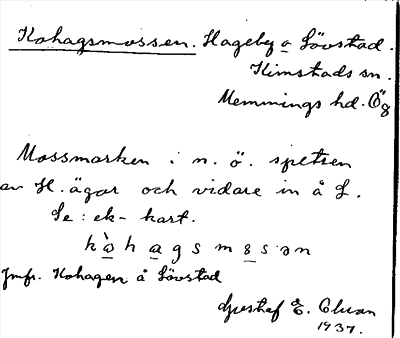 Kohagsmossen. Hageby o Lövstad.
Kimstads sn.
Memmings hd. Ög
Mossmarken i n. ö. spetsen
av H. ägor och vidare in å L.
Se: ek-kart.
Jmfr. Kohagen å Lövstad
Gustaf E.
1937.